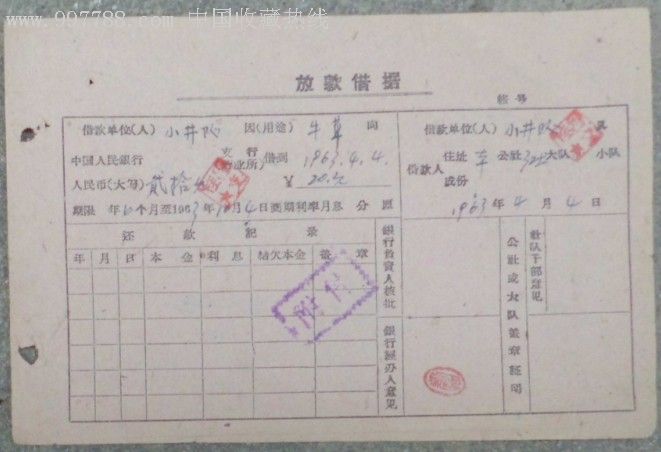 www.997788.com 中国收藏热线
放款借据
帐号
借款单位(人) 小井 因(用途) 牛草 向
中国人民银行 支行 营业所 借到 1963.4.4.
人民币(大写) 贰拾元 ¥ 20.元
期限 年 个月至1963年10月4日到期利率月息 分 厘
还款记录
年 月 日 本金 利息 结欠本金 盖章
银行负责人核批
银行经办人意见
借款单位(人) 小井
借款人 住址 公社 大队 小队
成份
1963年4月4日
社队干部意见
公社或大队盖章证明
附件